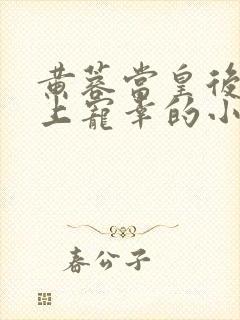 黄蓉當皇後
上寵幸的小
春公子